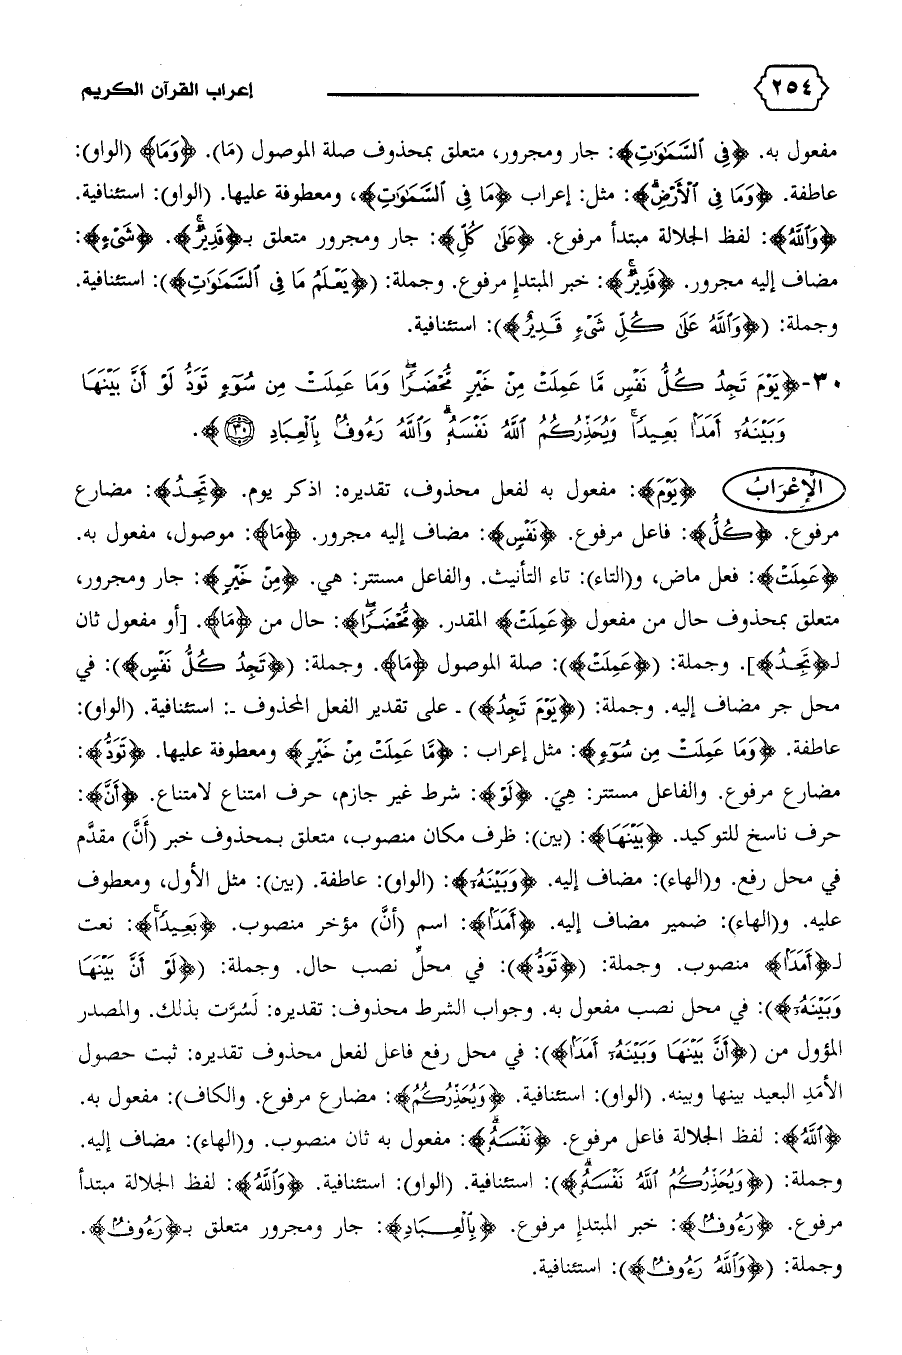 ٢٥٤ إعراب القرآن الكريم
مفعول به. ﴿فِي ٱلسَّمَٰوَٰتِ﴾: جار ومجرور، متعلق بمحذوف صلة الموصول (مَا). ﴿وَمَا﴾ (الواو):
عاطفة. ﴿وَمَا فِي ٱلْأَرْضِۗ﴾: مثل: إعراب ﴿مَا فِي ٱلسَّمَٰوَٰتِ﴾، ومعطوفة عليها. (الواو): استئنافية.
﴿وَٱللَّهُ﴾: لفظ الجلالة مبتدأ مرفوع. ﴿عَلَىٰ كُلِّ﴾: جار ومجرور متعلق بـ﴿قَدِيرٌۭ﴾. ﴿شَىْءٍ﴾:
مضاف إليه مجرور. ﴿قَدِيرٌۭ﴾: خبر المبتدإ مرفوع. وجملة: (﴿يَعْلَمُ مَا فِي ٱلسَّمَٰوَٰتِ﴾): استئنافية.
وجملة: (﴿وَٱللَّهُ عَلَىٰ كُلِّ شَىْءٍ قَدِيرٌ﴾): استئنافية.
٣٠-﴿يَوْمَ تَجِدُ كُلُّ نَفْسٍ مَّا عَمِلَتْ مِنْ خَيْرٍ مُّحْضَرًا وَمَا عَمِلَتْ مِن سُوٓءٍ تَوَدُّ لَوْ أَنَّ بَيْنَهَا
وَبَيْنَهُۥٓ أَمَدًۢا بَعِيدًا ۗ وَيُحَذِّرُكُمُ ٱللَّهُ نَفْسَهُۥ ۗ وَٱللَّهُ رَءُوفٌۢ بِٱلْعِبَادِ ٣٠﴾.
الْإِعْرَابُ ﴿يَوْمَ﴾: مفعول به لفعل محذوف، تقديره: اذكر يوم. ﴿تَجِدُ﴾: مضارع
مرفوع. ﴿كُلُّ﴾: فاعل مرفوع. ﴿نَفْسٍ﴾: مضاف إليه مجرور. ﴿مَا﴾: موصول، مفعول به.
﴿عَمِلَتْ﴾: فعل ماض، و(التاء): تاء التأنيث. والفاعل مستتر: هي. ﴿مِنْ خَيْرٍ﴾: جار ومجرور،
متعلق بمحذوف حال من مفعول ﴿عَمِلَتْ﴾ المقدر. ﴿مُّحْضَرًا﴾: حال من ﴿مَا﴾. [أو مفعول ثان
لـ﴿تَجِدُ﴾]. وجملة: (﴿عَمِلَتْ﴾): صلة الموصول ﴿مَا﴾. وجملة: (﴿تَجِدُ كُلُّ نَفْسٍ﴾): في
محل جر مضاف إليه. وجملة: (﴿يَوْمَ تَجِدُ﴾) ـ على تقدير الفعل المحذوف ـ: استئنافية. (الواو):
عاطفة. ﴿وَمَا عَمِلَتْ مِن سُوٓءٍ﴾: مثل إعراب : ﴿مَّا عَمِلَتْ مِنْ خَيْرٍ﴾ ومعطوفة عليها. ﴿تَوَدُّ﴾:
مضارع مرفوع. والفاعل مستتر: هِيَ. ﴿لَوْ﴾: شرط غير جازم، حرف امتناع لامتناع. ﴿أَنَّ﴾:
حرف ناسخ للتوكيد. ﴿بَيْنَهَا﴾: (بين): ظرف مكان منصوب، متعلق بمحذوف خبر (أَنَّ) مقدَّم
في محل رفع. و(الهاء): مضاف إليه. ﴿وَبَيْنَهُۥٓ﴾: (الواو): عاطفة. (بين): مثل الأول، ومعطوف
عليه. و(الهاء): ضمير مضاف إليه. ﴿أَمَدًۢا﴾: اسم (أنَّ) مؤخر منصوب. ﴿بَعِيدًا﴾: نعت
لـ﴿أَمَدًۢا﴾ منصوب. وجملة: (﴿تَوَدُّ﴾): في محلِّ نصب حال. وجملة: (﴿لَوْ أَنَّ بَيْنَهَا
وَبَيْنَهُۥٓ﴾): في محل نصب مفعول به. وجواب الشرط محذوف: تقديره: لَسُرَّت بذلك. والمصدر
المؤول من (﴿أَنَّ بَيْنَهَا وَبَيْنَهُۥٓ أَمَدًۢا﴾): في محل رفع فاعل لفعل محذوف تقديره: ثبت حصول
الأمَدِ البعيد بينها وبينه. (الواو): استئنافية. ﴿وَيُحَذِّرُكُمُ﴾: مضارع مرفوع. والكاف): مفعول به.
﴿ٱللَّهُ﴾: لفظ الجلالة فاعل مرفوع. ﴿نَفْسَهُۥ ۗ﴾: مفعول به ثان منصوب. و(الهاء): مضاف إليه.
وجملة: (﴿وَيُحَذِّرُكُمُ ٱللَّهُ نَفْسَهُۥ ۗ﴾): استئنافية. (الواو): استئنافية. ﴿وَٱللَّهُ﴾: لفظ الجلالة مبتدأ
مرفوع. ﴿رَءُوفٌۢ﴾: خبر المبتدإ مرفوع. ﴿بِٱلْعِبَادِ﴾: جار ومجرور متعلق بـ﴿رَءُوفٌۢ﴾.
وجملة: (﴿وَٱللَّهُ رَءُوفٌۢ﴾): استئنافية.